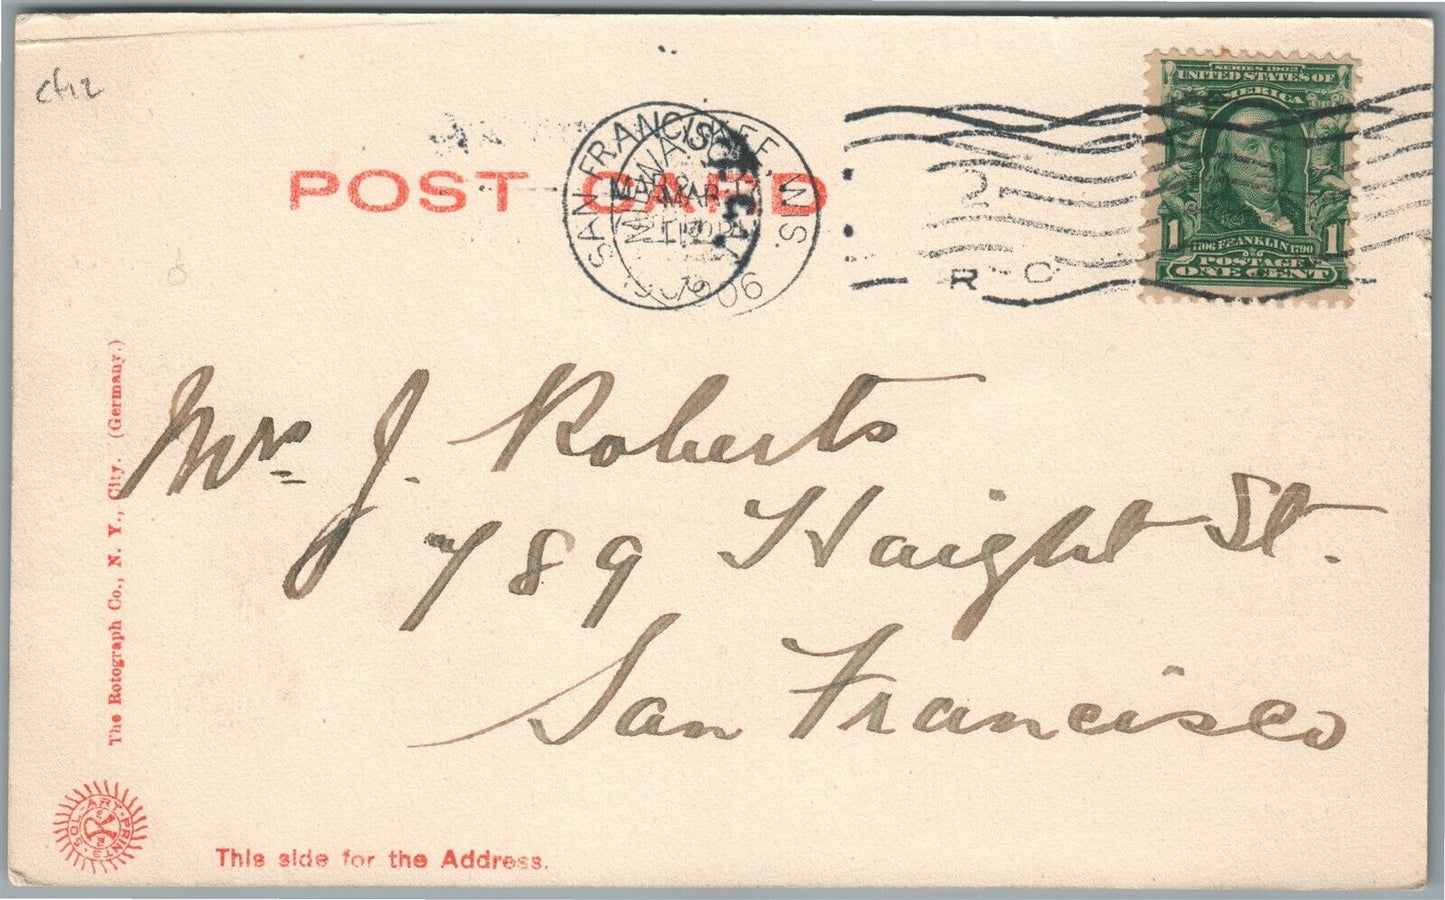 cf12
SERIES 1902
UNITED STATES OF
AMERICA
1706 FRANKLIN 1790
1 1
POSTAGE
ONE CENT
SAN FRANCISCO, CAL.
MILWAUKEE, WIS.
MAR
MAR
1906
2
R C
POST CARD
Mrs J. Roberts
789 Haight St.
San Francisco
The Rotograph Co., N. Y., City. (Germany.)
SOL-ART-PRINTS
This side for the Address.